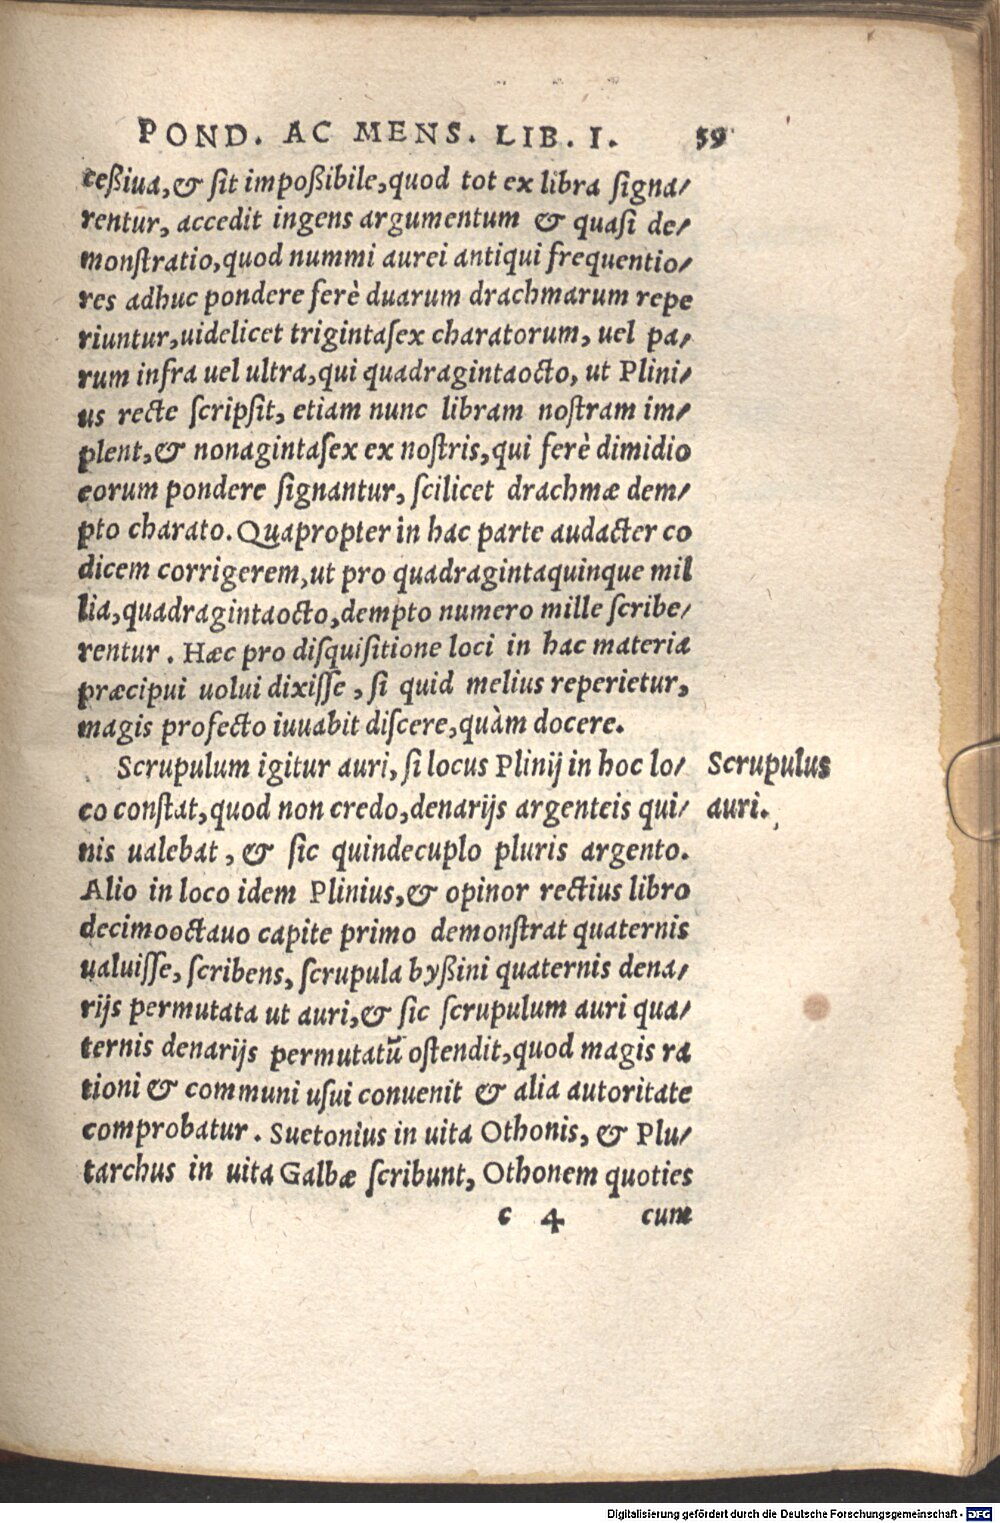 POND. AC MENS. LIB. I. 59
ceßiua,& ſit impoßibile,quod tot ex libra ſigna/
rentur, accedit ingens argumentum & quaſi de/
monſtratio,quod nummi aurei antiqui frequentio/
res adhuc pondere ferè duarum drachmarum repe
riuntur,uidelicet trigintaſex charatorum, uel pa/
rum infra uel ultra,qui quadragintaocto, ut Plini/
us recte ſcripſit, etiam nunc libram noſtram im/
plent,& nonagintaſex ex noſtris,qui ferè dimidio
eorum pondere ſignantur, ſcilicet drachmæ dem/
pto charato. Quapropter in hac parte audacter co
dicem corrigerem,ut pro quadragintaquinque mil
lia,quadragintaocto,dempto numero mille ſcribe/
rentur. Hæc pro diſquiſitione loci in hac materia
præcipui uolui dixiſſe, ſi quid melius reperietur,
magis profecto iuuabit diſcere,quàm docere.
Scrupulum igitur auri, ſi locus Plinij in hoc lo/
co conſtat,quod non credo,denarijs argenteis qui/
nis ualebat, & ſic quindecuplo pluris argento.
Alio in loco idem Plinius,& opinor rectius libro
decimooctauo capite primo demonſtrat quaternis
ualuiſſe, ſcribens, ſcrupula byßini quaternis dena/
rijs permutata ut auri,& ſic ſcrupulum auri qua/
ternis denarijs permutatū oſtendit,quod magis ra
tioni & communi uſui conuenit & alia autoritate
comprobatur. Suetonius in uita Othonis, & Plu/
tarchus in uita Galbæ ſcribunt, Othonem quoties
c 4 cum
Scrupulus
auri.
Digitalisierung gefördert durch die Deutsche Forschungsgemeinschaft - DFG